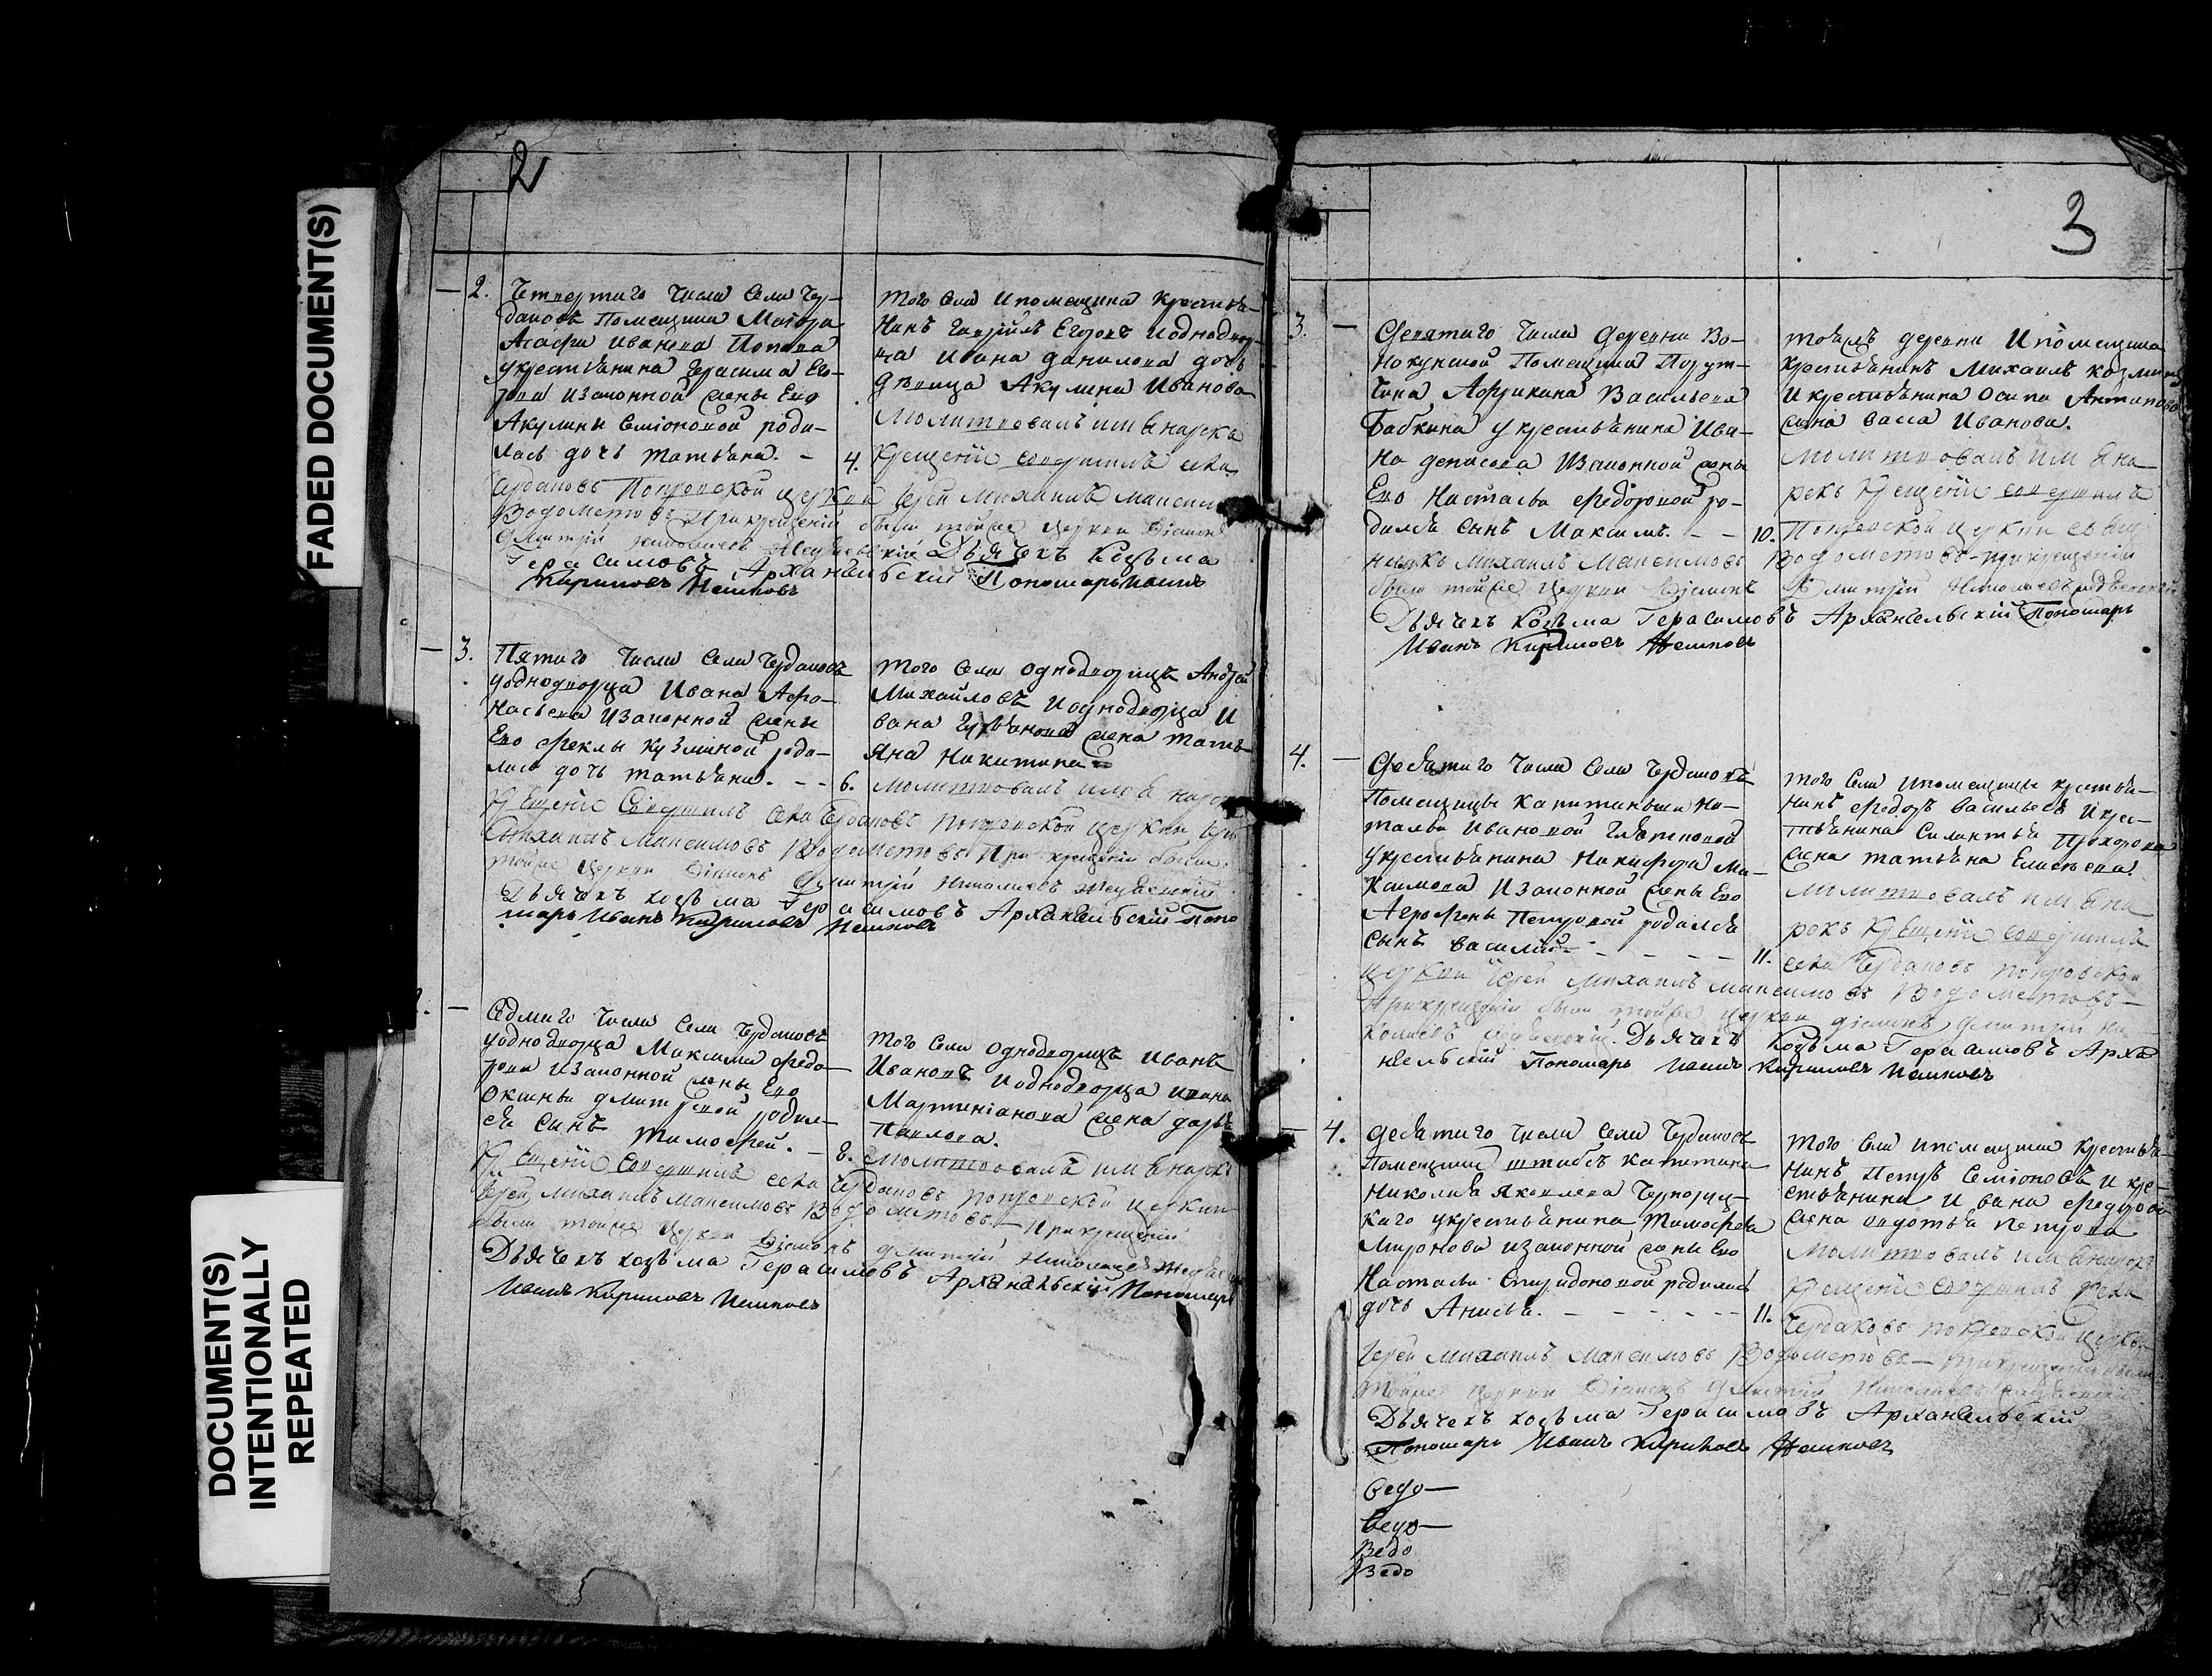 FADED DOCUMENT(S)
DOCUMENT(S)
INTENTIONALLY
REPEATED
2
2.
Четвертаго числа села Чер-
даковъ Помещика Маіора
Ивана Попова
укрестьянина Герасима Его-
рова изаконной жены Его
Акулины Семіоновой роди-
лась дочь татьяна. - 4.
того села ипомещика крестья-
нинъ Гаврійлъ Егоровъ иоднодвор-
ца Ивана данилова дочь
девица Акулина Иванова
Молитвовалъ имя нарекъ
Крещеніе совершилъ села
Чердаковъ Покровской церкви Іерей Михаилъ Максимовъ
Водометовъ При крещеніи были тойже церкви Діаконъ
Дмитрій Дьячекъ Козьма
Герасимовъ Архангельскій Пономарь Иванъ
Кириловъ
3.
Пятаго числа села Чердаковъ
уоднодворца Ивана Афо-
насьева изаконной жены
Его феклы кузминой роди-
лась дочь татьяна. - - 6.
того села однодворецъ Андрей
Михайловъ иоднодворца И
вана жена тать
яна Никитина
молитвовалъ имя нарекъ
Крещеніе Совершилъ села Чердаковъ покровской церкви Іерей
Михаилъ Максимовъ Водометовъ При крещеніи были
тойже церкви Діаконъ Дмитрій Николаевъ
Дьячекъ козьма Герасимовъ Архангельскій Поно
марь Иванъ Кириловъ
Седмаго числа села Чердаковъ
уоднодворца Максима федо-
рова изаконной жены Его
Оксиньи дмитревой родил-
ся сынъ тимофей. - 8.
того села однодворецъ Иванъ
Ивановъ иоднодворца ивана
Мартиніанова жена дарья
Павлова.
Молитвовалъ имя нарекъ
Крещеніе совершилъ села Чердаковъ покровской церкви
Іерей Михаилъ Максимовъ Водометовъ - При крещеніи
были тойже церкви Діаконъ дмитрій Николаевъ
Дьячекъ козьма Герасимовъ Архангельскій Пономарь
Иванъ Кириловъ
3
3.
Девятаго числа деревни Во-
Помещика Порут-
чика Африкана Васильева
Бабкина укрестьянина Ива-
на денисова изаконной жены
Его Настасьи федоровой ро-
дился сынъ Максимъ. - - 10.
тоежъ деревни ипомещика
крестьянинъ Михаилъ козминъ
икрестьянина Осипа Антипова
жена васса Иванова.
молитвовалъ имя на
рекъ Крещеніе совершилъ
Покровской церкви свящ
никъ михаилъ Максимовъ Водометовъ - при крещеніи
были тойже церкви Діаконъ Дмитрій Николаевъ
Дьячекъ козьма Герасимовъ Архангельскій Пономарь
Иванъ Кириловъ
4.
Девятаго числа села Чердаковъ
Помещицы капитанши На-
тальи Ивановой
укрестьянина Никифора Ма-
ксимова изаконной жены Его
Агрофены Петровой родился
сынъ василий - - - - - 11.
того села ипомещицы крестья-
нинъ федоръ васильевъ икрес-
тьянина Силантья Прохорова
жена татьяна Елисеева.
молитвовалъ имя на
рекъ Крещеніе совершилъ
села Чердаковъ покровской
церкви Іерей Михаилъ максимовъ Водометовъ -
При крещеніи были тойже церкви діаконъ дмитрій Ни
колаевъ Дьячекъ Козьма Герасимовъ Арха
нгельскій Пономарь Иванъ Кириловъ
4.
девятаго числа села Чердаковъ
Помещика штабсъ капитана
Николая Яковлева
укрестьянина тимофея
Миронова изаконной жены Его
Настасьи Спиридоновой родилась
дочь Анисья. - - - - - - 11.
того села ипомещика крестья-
нинъ Петръ Семіоновъ икре-
стьянина Ивана федорова
жена авдотья Петрова
Молитвовалъ имя нарекъ
Крещеніе совершилъ села
Чердаковъ покровской церкви
Іерей Михаилъ Максимовъ Водометовъ - при крещеніи были
тойже церкви Діаконъ Дмитрій Николаевъ
Дьячекъ козьма Герасимовъ Архангельскій
Пономарь Иванъ Кириловъ
Ведо
Ведо
Ведо
Ведо